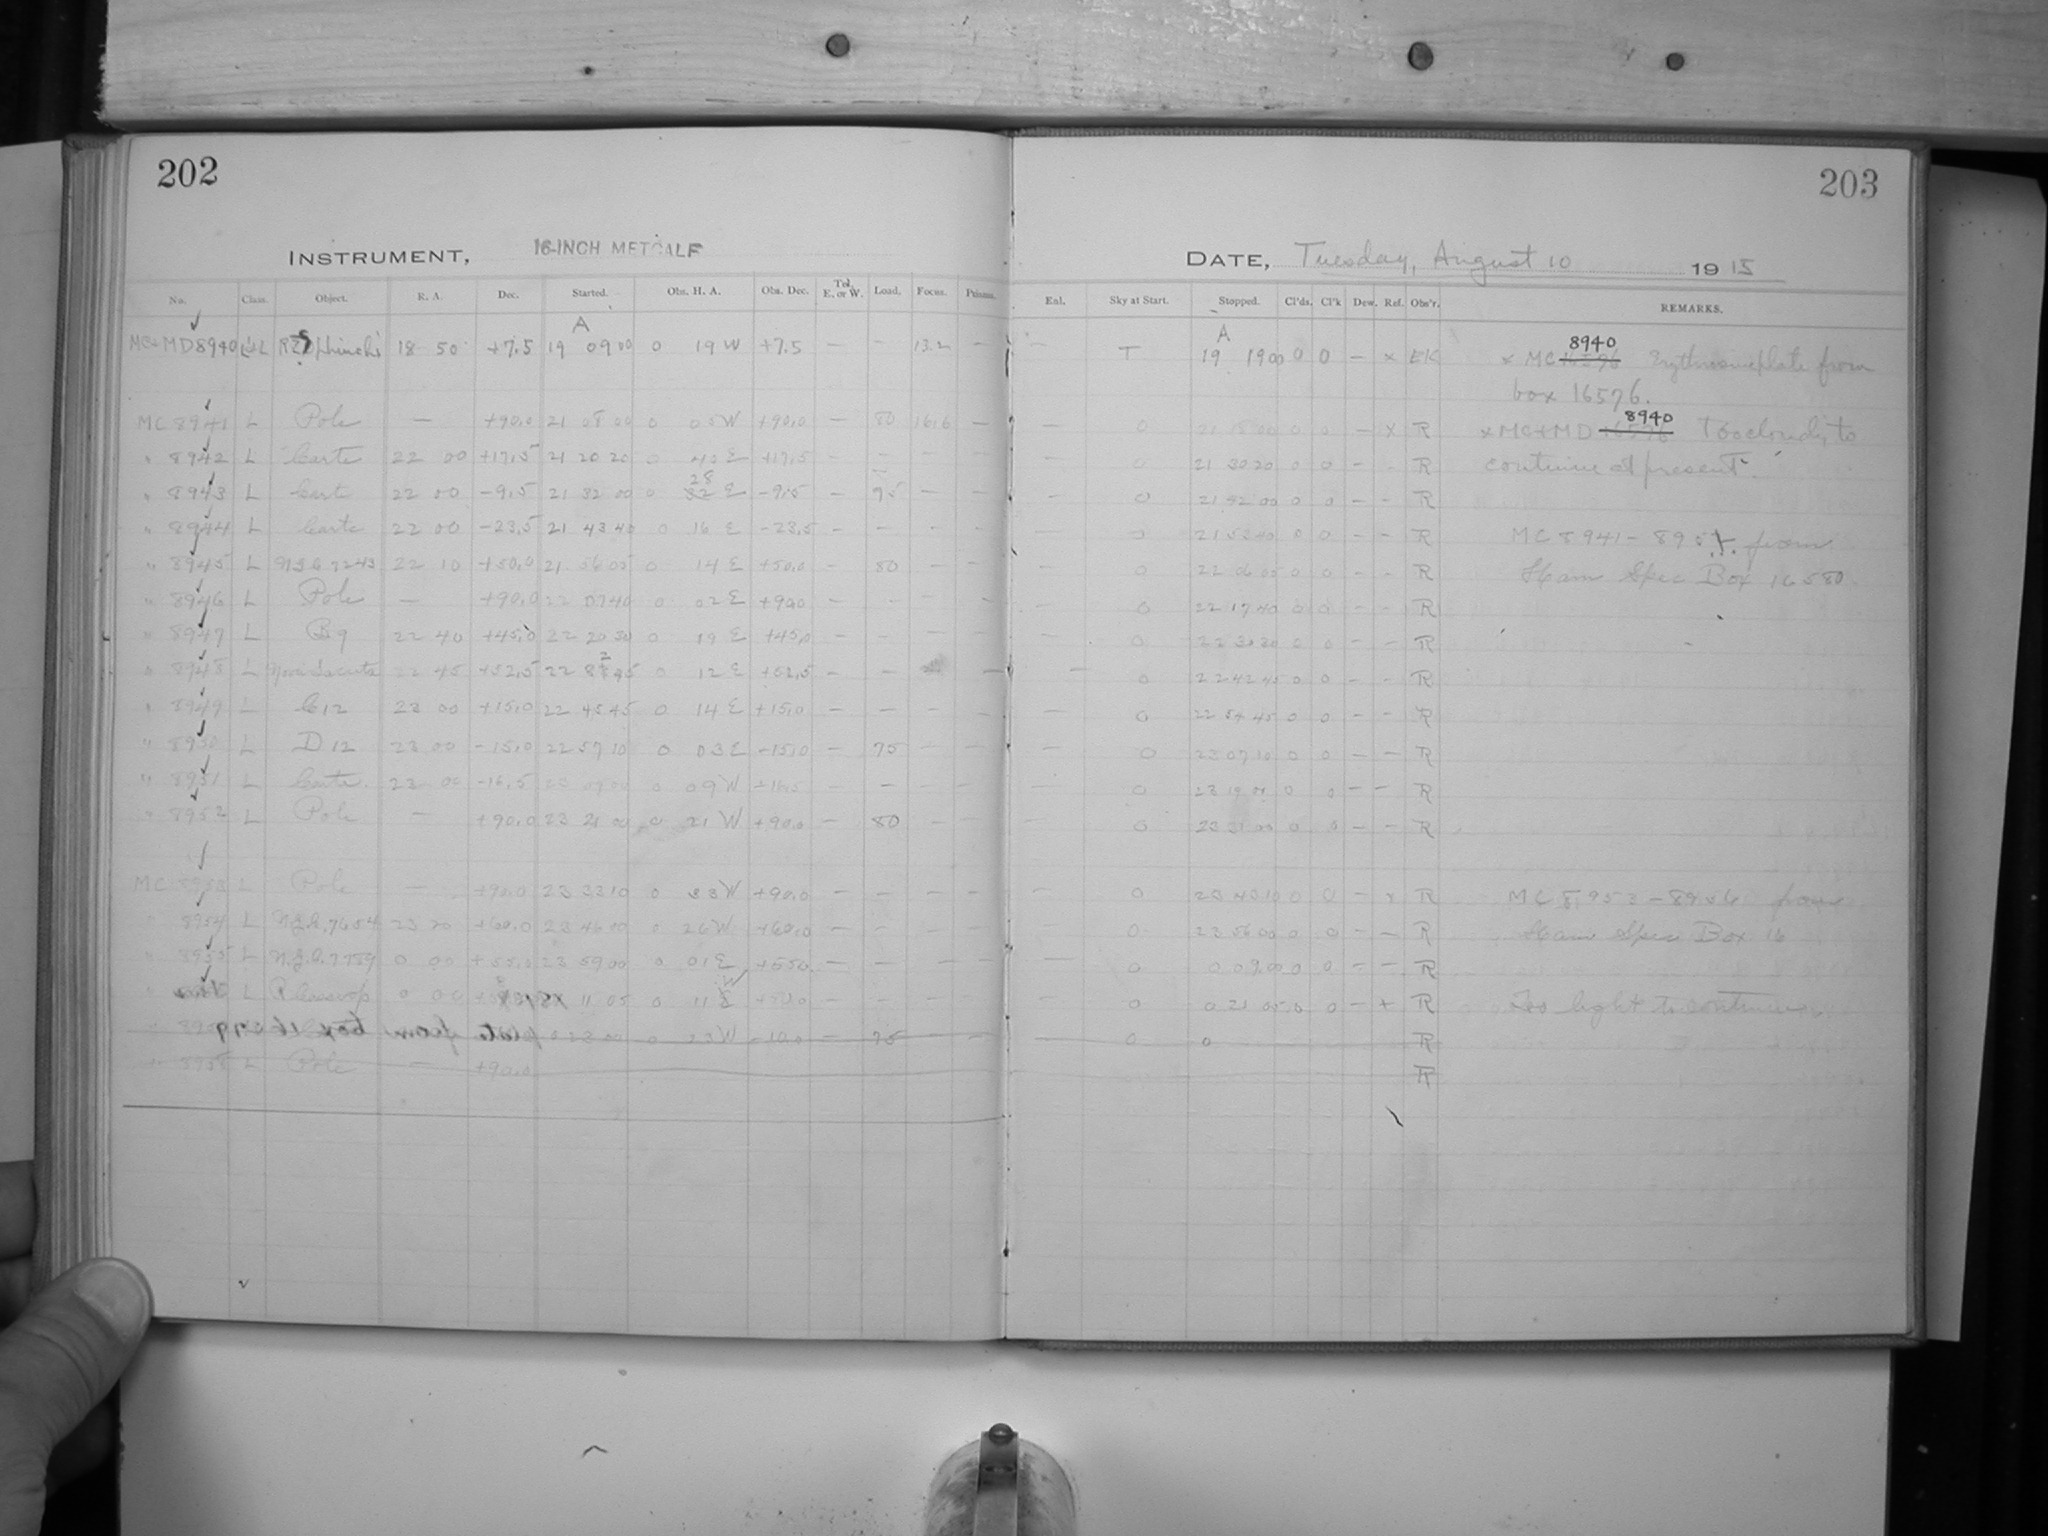 202
INSTRUMENT, 16-INCH METCALF
No. Class. Object. R. A. Dec. Started. Obs. H. A. Obs. Dec. Tel. E. or W. Load. Focus. Prisms.
A
MC+MD8940 18 50 +7.5 19 09 00 0 19 W +7.5 — — 13.2
MC 8941 L Pole — +90.0 21 08 00 0 05 W +90.0 — 80 16.6 —
" 8942 L Carte 22 00 +17.5 21 20 20 0 40 E +17.5 — — — —
28
" 8943 L Carte 22 00 -9.5 21 32 00 0 32 E -9.5 — 75 — —
" 8944 L Carte 22 00 -23.5 21 43 40 0 16 E -23.5 — — — —
" 8945 L N.G.C. 7243 22 10 +50.0 21 56 05 0 14 E +50.0 — 80 — —
" 8946 L Pole — +90.0 22 07 40 0 02 E +90.0 — — — —
" 8947 L B9 22 40 +45.0 22 20 30 0 19 E +45.0 — — — —
" 8948 L 22 45 +52.5 22 0 12 E +52.5 — — —
" 8949 L C12 23 00 +15.0 22 45 45 0 14 E +15.0 — — — —
" 8950 L D12 23 00 -15.0 22 57 10 0 03 E -15.0 — 75 — —
" 8951 L Carte 23 00 -16.5 23 09 00 0 09 W +16.5 — — — —
" 8952 L Pole — +90.0 23 21 00 0 21 W +90.0 — 80 — —
MC 8953 L Pole — +90.0 23 33 10 0 33 W +90.0 — — — —
" 8954 L N.G.C. 7654 23 20 +60.0 23 46 00 0 26 W +60.0 — — — —
" 8955 L N.G.C. 7789 0 00 +55.0 23 59 00 0 01 E +55.0 — — — —
" L 0 00 11 05 0 11 — — — —
0 23 00 0 23 W -10.0 — 75 — —
" 8958 L Pole — +90.0
203
DATE, Tuesday, August 10 1915
Enl. Sky at Start. Stopped. Cl'ds. Cl'k Dew. Ref. Obs'r. REMARKS.
A
8940
— T 19 19 00 0 0 — x EK x MC 16576 Erythrosine plate from
box 16576.
8940
— 0 21 18 00 0 0 — x R x MC+MD 16576 Too cloudy to
— 0 21 30 20 0 0 — - R continue at present.
— 0 21 42 00 0 0 — — R
— 0 21 53 40 0 0 — — R MC 8941 - from
— 0 22 06 05 0 0 — — R Ham Spec Box 16580
— 0 22 17 40 0 0 — — R
— 0 22 30 30 0 0 — — R
— 0 22 42 45 0 0 — — R
— 0 22 54 45 0 0 — — R
— 0 23 07 10 0 0 — — R
— 0 23 19 00 0 0 — — R
— 0 23 31 00 0 0 — — R
— 0 23 43 10 0 0 — x R MC 8953 - 8956 from
0 23 56 00 0 0 — — R Ham Spec Box 16
— 0 0 09 00 0 0 — — R
— 0 0 21 05 0 0 — + R Too light to continue.
0 0 R
R